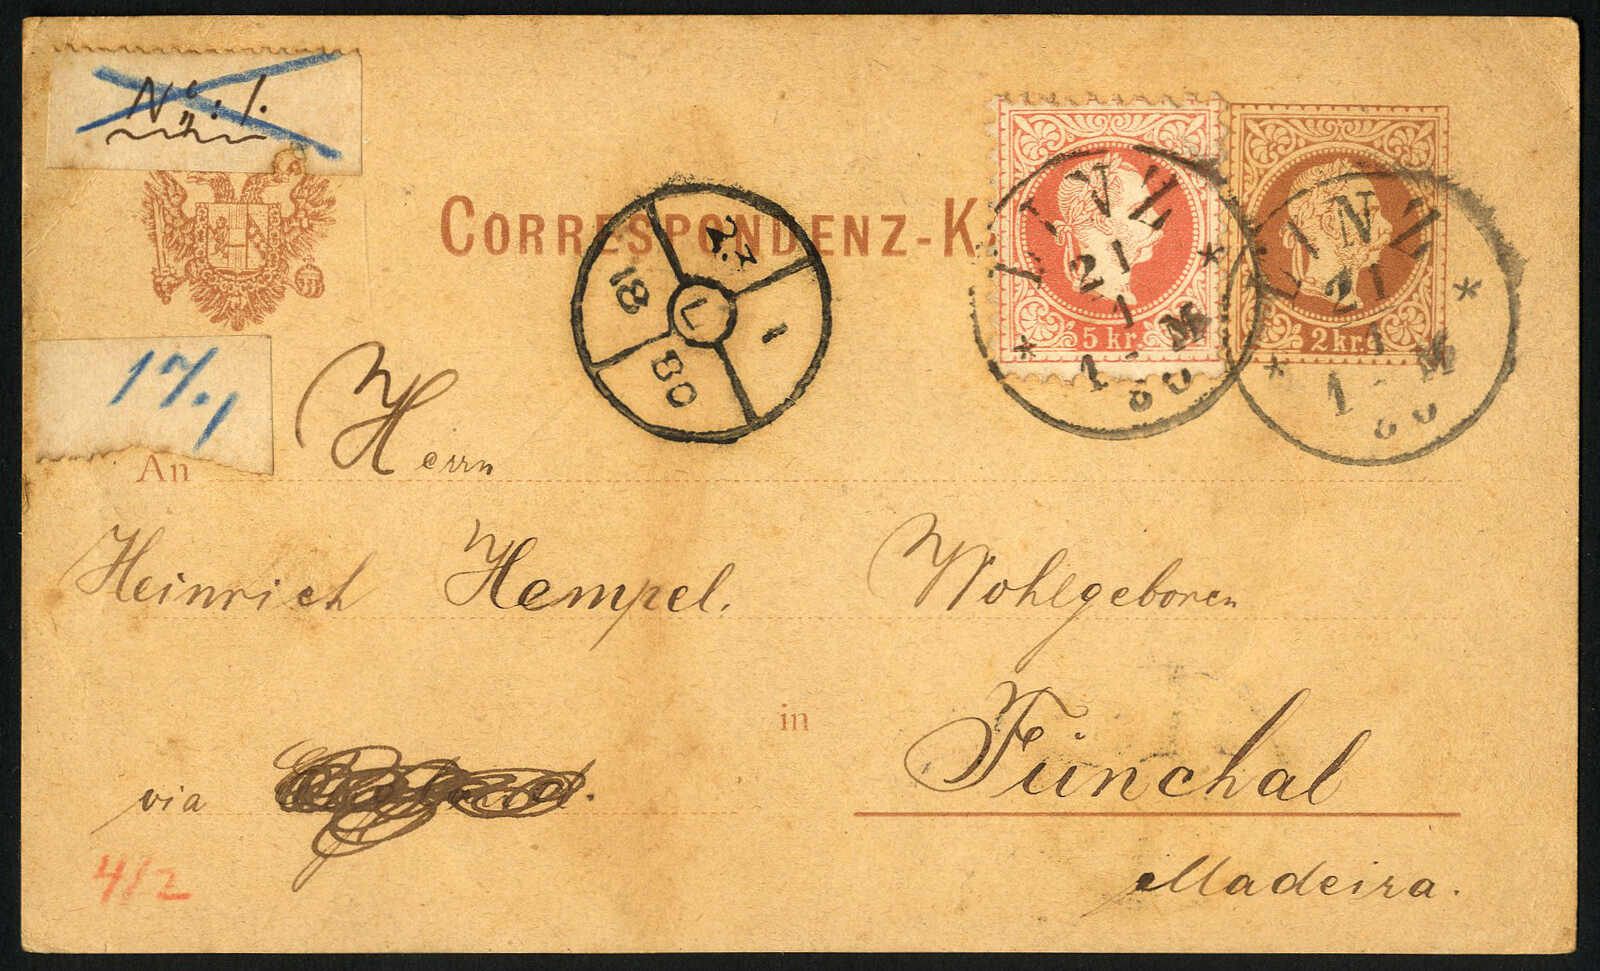 No: 1.
CORRESPONDENZ-K
5 kr.
2 kr.
LINZ
21
1
1-M
80
LINZ
21
1
1-M
80
23
1
18
80
7
17/1
An Herrn
Heinrich Hempel. Wohlgeboren
in Funchal
via
4/2
Madeira.